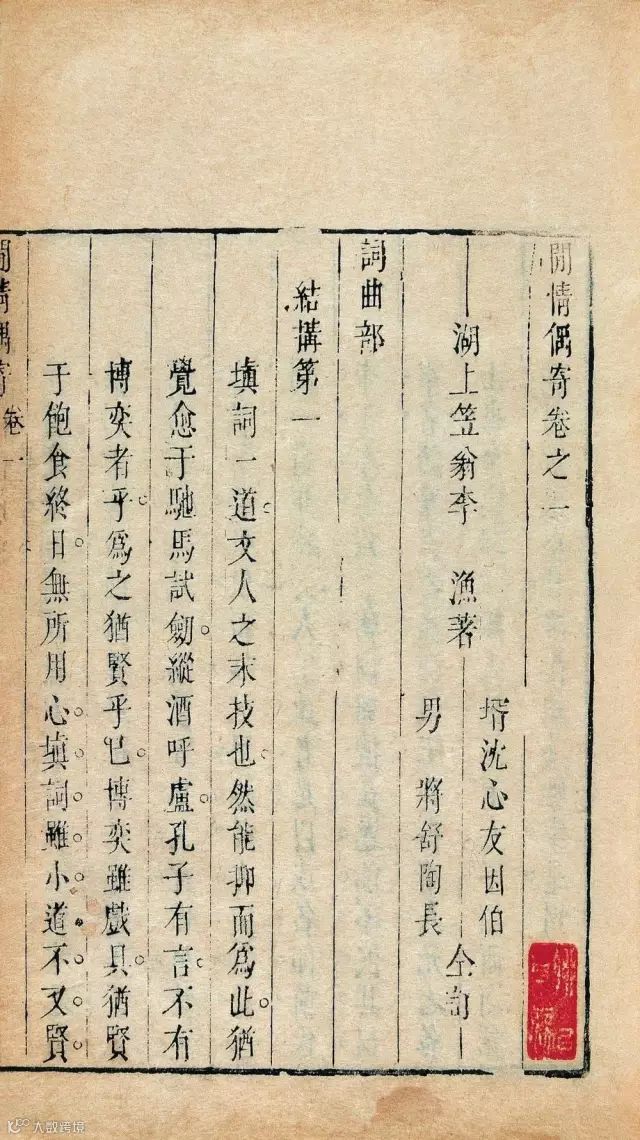 閒情偶寄卷之一
湖上笠翁李漁著
壻沈心友因伯
男將舒陶長
仝訂
詞曲部
結搆第一
填詞一道。文人之末技也。然能抑而爲此。猶
覺愈于馳馬試劒。縱酒呼盧。孔子有言。不有
博奕者乎。爲之猶賢乎已。博奕雖戲具。猶賢
于飽食終日。無所用心。填詞雖小道。不又賢
閒情偶寄 卷一
大数跨境